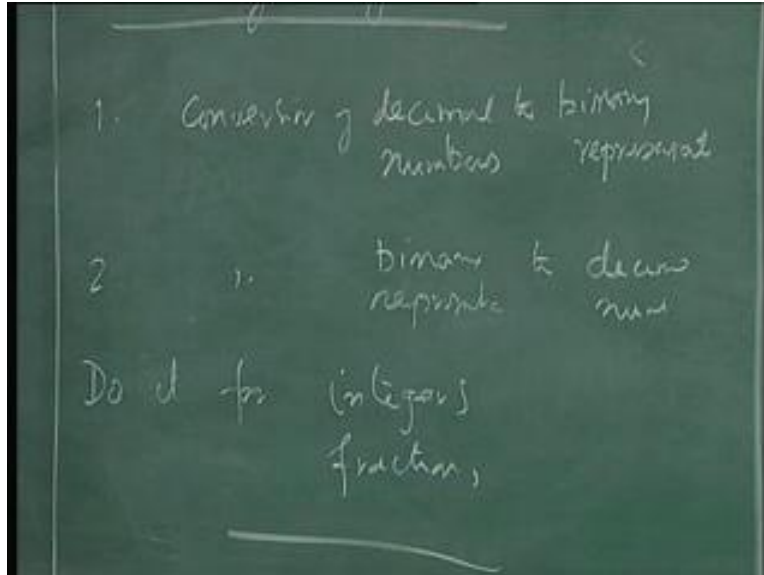 1. Conversion of decimal to binary
numbers represent
2 ,, binary to decim
represent num
Do it for integers
fraction,